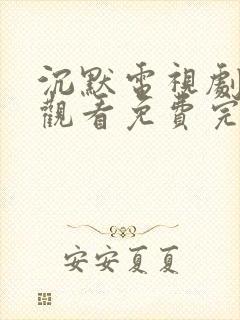 沉默電視劇
觀看免費完
安安夏夏